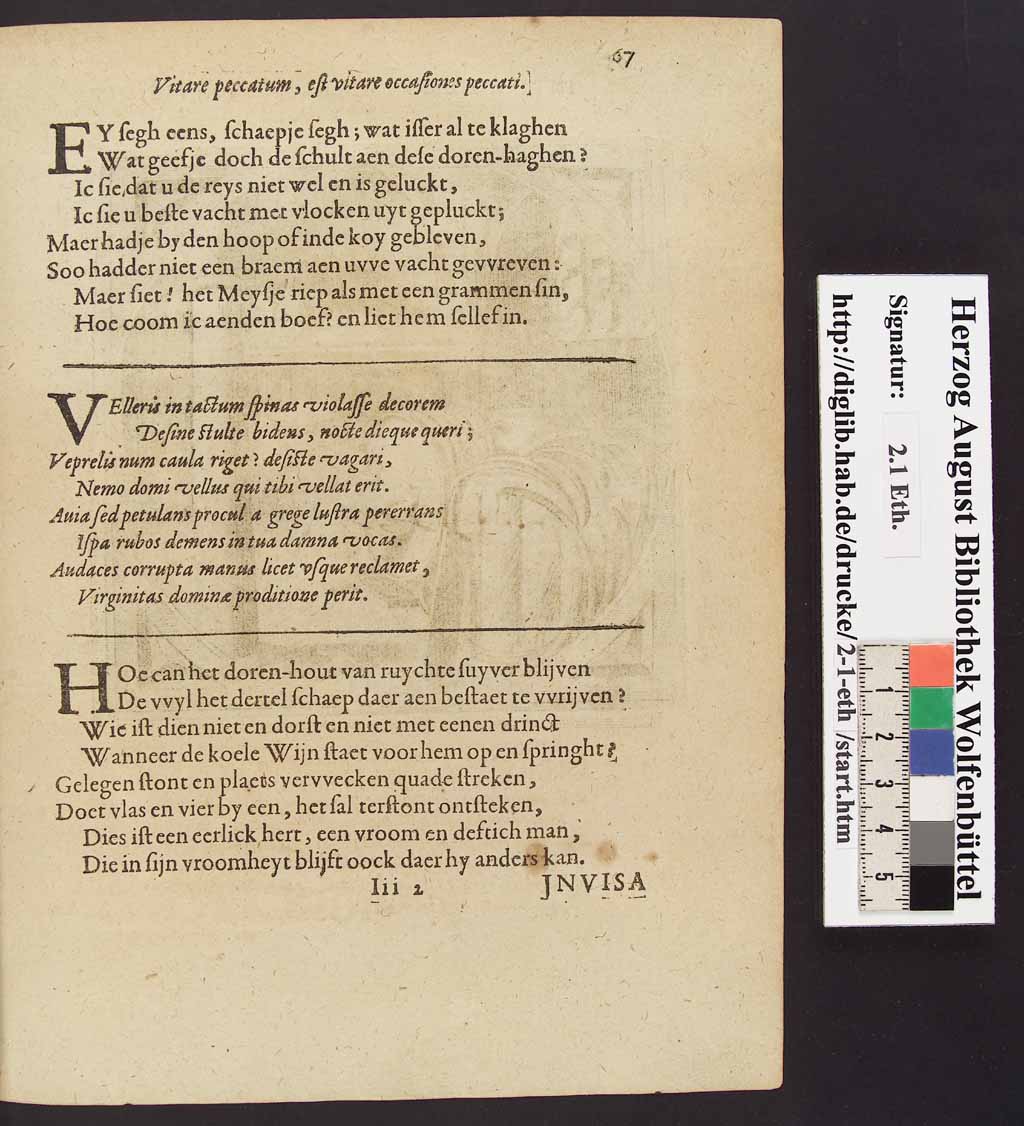 67
Vitare peccatum, eſt vitare occaſiones peccati.]
EY ſegh eens, ſchaepje ſegh; wat iſſer al te klaghen
Wat geefje doch de ſchult aen deſe doren-haghen?
Ic ſie, dat u de reys niet wel en is geluckt,
Ic ſie u beſte vacht met vlocken uyt gepluckt;
Maer hadje by den hoop of inde koy gebleven,
Soo hadder niet een braem aen uvve vacht gevvreven:
Maer ſiet! het Meyſje riep als met een grammen ſin,
Hoe coom ic aenden boef? en liet hem ſellef in.
VElleris intactum ſpinas violaſſe decorem
Deſine ſtulte bidens, nocte dieque queri;
Veprelis num caula riget? deſiſte vagari,
Nemo domi vellus qui tibi vellat erit.
Avia ſed petulans procul a grege luſtra pererrans
Iſpa rubos demens in tua damna vocas.
Audaces corrupta manus licet vſque reclamet,
Virginitas dominæ proditione perit.
HOe can het doren-hout van ruychte ſuyver blijven
De vvyl het dertel ſchaep daer aen beſtaet te vvrijven?
Wie iſt dien niet en dorſt en niet met eenen drinct
Wanneer de koele Wijn ſtaet voor hem op en ſpringht?
Gelegen ſtont en plaets vervvecken quade ſtreken,
Doet vlas en vier by een, het ſal terſtont ontſteken,
Dies iſt een eerlick hert, een vroom en deftich man,
Die in ſijn vroomheyt blijft oock daer hy anders kan.
Iii 2 JNVISA
Herzog August Bibliothek Wolfenbüttel
Signatur: 2.1 Eth.
http://diglib.hab.de/drucke/2-1-eth /start.htm
1 2 3 4 5